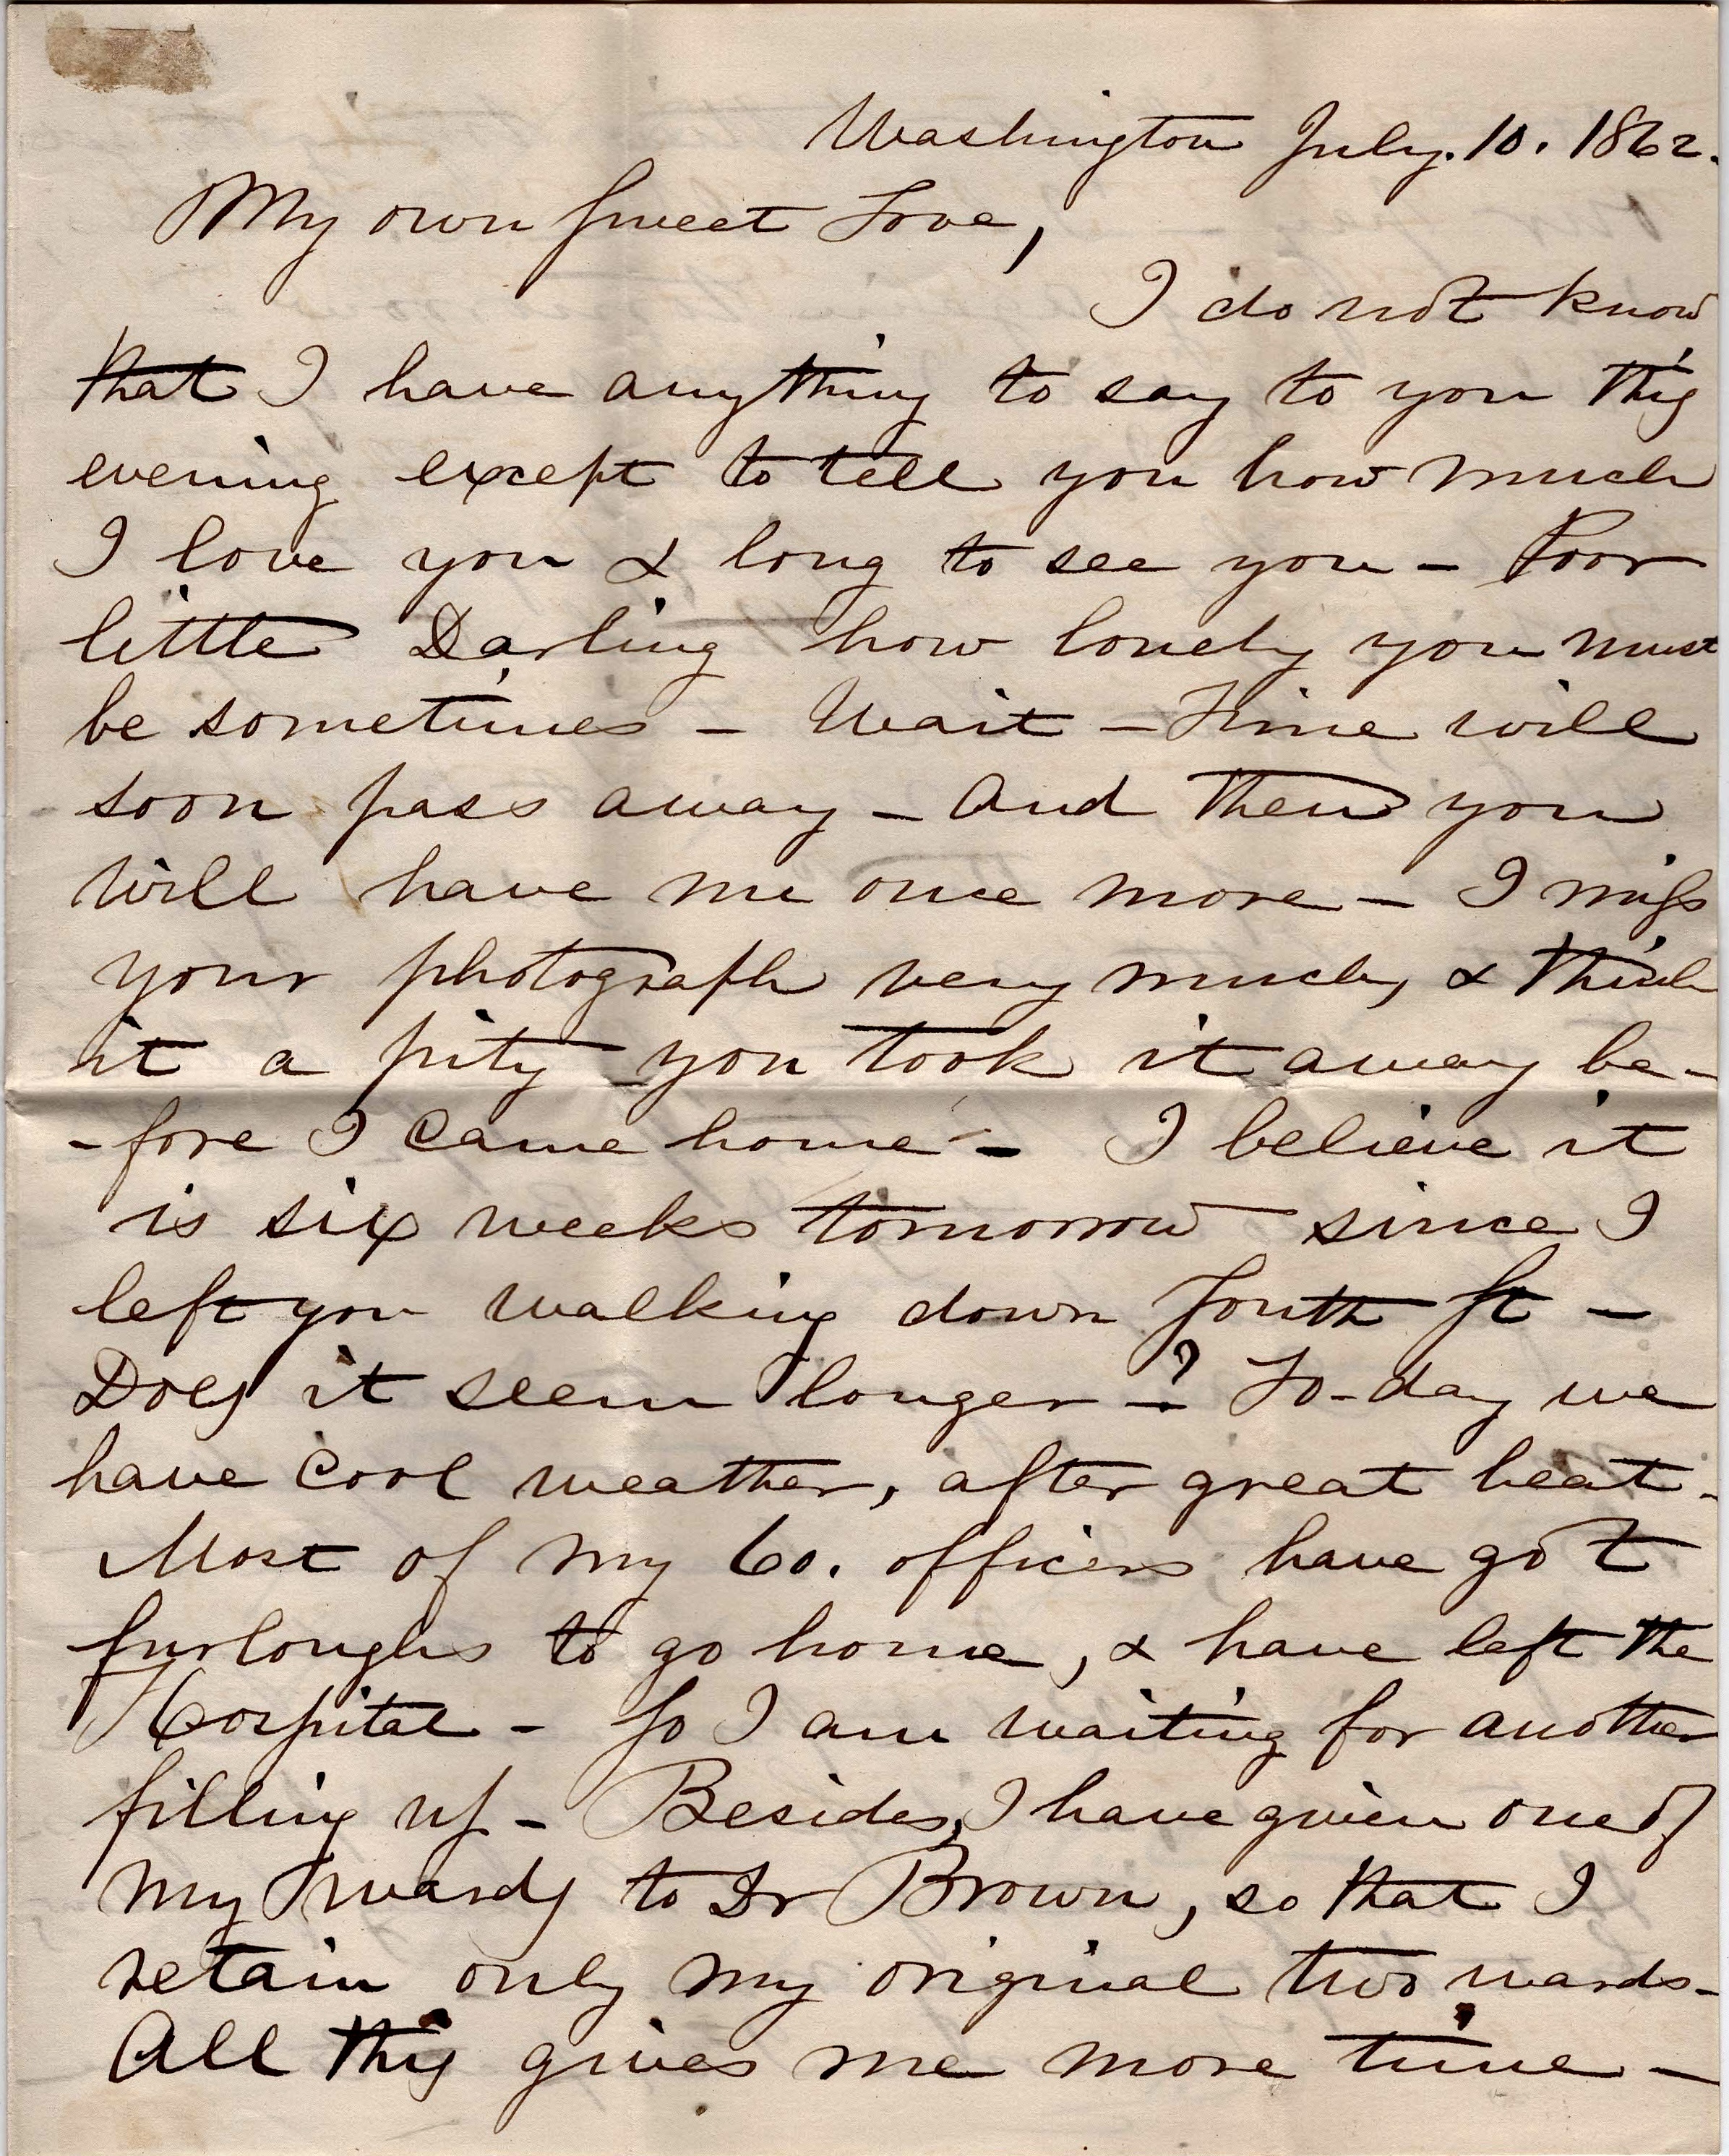 Washington July. 10. 1862.
My own Sweet Love,
I do not know
that I have anything to say to you this
evening except to tell you how much
I love you & long to see you – Poor
little Darling how lonely you must
be sometimes – Wait – Time will
soon pass away – And then you
will have me once more – I miss
your photograph very much, & think
it a pity you took it away be-
-fore I came home – I believe it
is six weeks tomorrow since I
left you walking down South St –
Does it seem longer –? To-day we
have cool weather, after great heat –
Most of my Co. officers have got
furloughs to go home, & have left the
Hospital – So I am waiting for another
filling up – Besides, I have given one of
my wards to Dr Brown, so that I
retain only my original two wards –
All this gives me more time –